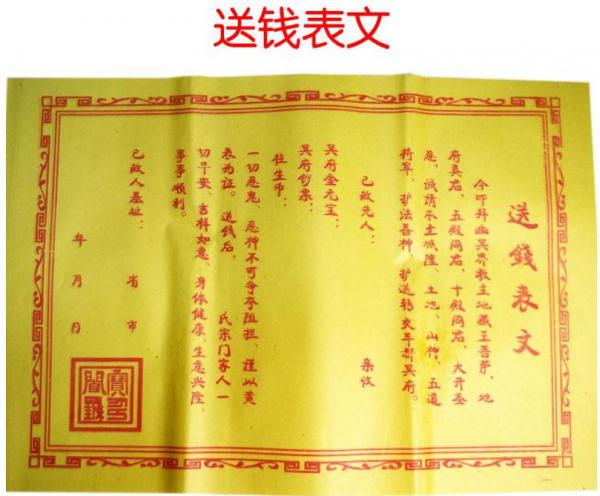 送钱表文
送錢表文
今叩拜幽冥界教主地藏王菩萨、地
府真君、五殿阎君、十殿阎君、大开圣
恩,诚请本土城隍、土地、山神、五道
将军、护法善神、护送转交丰都冥府。
已故先人: 亲收
冥府金元宝:
冥府钞票:
往生币:
一切恶鬼、恶神不可争夺阻拦、谨以黄
表为证。送钱后, 氏宗门家人一
切平安、吉祥如意、身体健康、生意兴隆、
事事顺利。
已故人墓址: 省 市
年 月 日